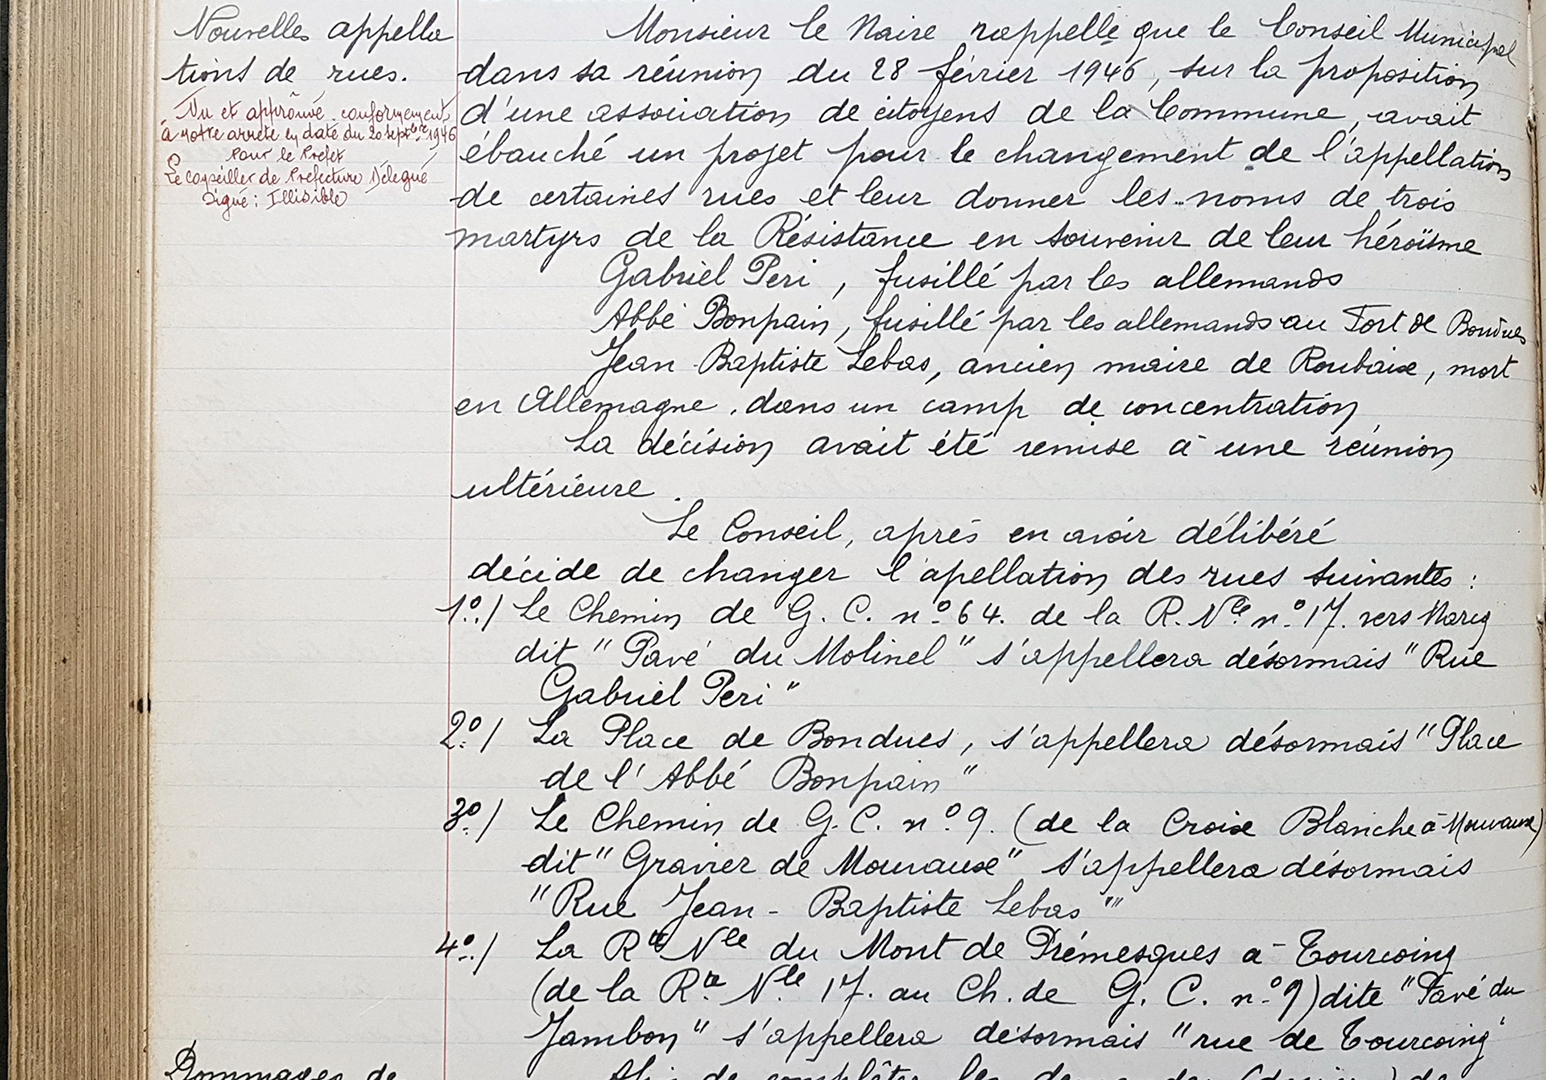 Nouvelles appella
tions de rues.
Vu et approuvé conformément
à notre arrêté en date du 20 septbre 1946
Pour le Préfet
Le Conseiller de Préfecture Délégué
Signé : Illisible
Monsieur le Maire rappelle que le Conseil Municipal
dans sa réunion du 28 février 1946, sur la proposition
d'une association de citoyens de la Commune, avait
ébauché un projet pour le changement de l'appellation
de certaines rues et leur donner les noms de trois
martyrs de la Résistance en souvenir de leur héroïsme
Gabriel Peri, fusillé par les allemands
Abbé Bonpain, fusillé par les allemands au Fort de Bondues
Jean-Baptiste Lebas, ancien maire de Roubaix, mort
en Allemagne, dans un camp de concentration
La décision avait été remise à une réunion
ultérieure.
Le Conseil, après en avoir délibéré
décide de changer l'apellation des rues suivantes :
1º/ Le Chemin de G. C. nº 64. de la R. Nle nº 17. vers Marcq
dit "Pavé du Molinel" s'appellera désormais "Rue
Gabriel Peri"
2º/ La Place de Bondues, s'appellera désormais "Place
de l'Abbé Bonpain"
3º/ Le Chemin de G. C. nº 9. (de la Croix Blanche à Mouvaux)
dit "Gravier de Mouvaux" s'appellera désormais
"Rue Jean-Baptiste Lebas"
4º/ La Rte Nle du Mont de Prémesques à Tourcoing
(de la Rte Nle 17. au Ch. de G. C. nº 9) dite "Pavé du
Jambon" s'appellera désormais "rue de Tourcoing"
Dommages de
Afin de compléter les